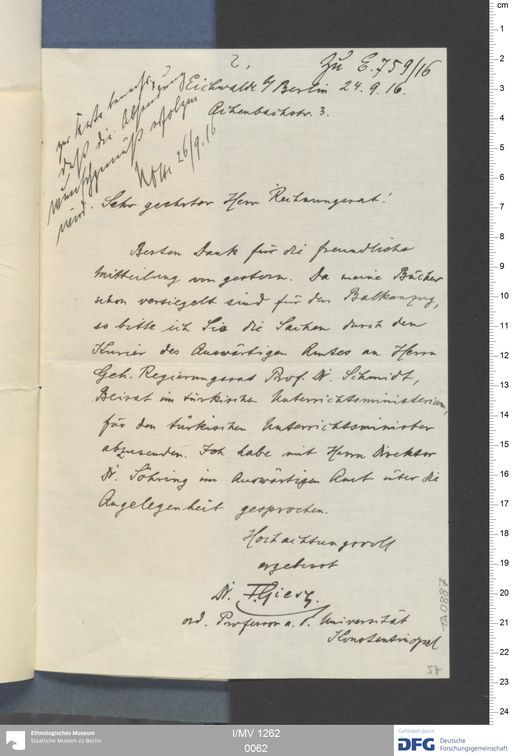 zu E. 759/16
Eichwalde b/Berlin 24.9.16.
Achenbachstr. 3.
zur Karte bemerkt,
daß die Absendung
wunschgemäß erfolgen
wird.
26/9.16
Sehr geehrter Herr Rechnungsrat!
Besten Dank für die freundliche
Mitteilung von gestern. Da meine Bücher
schon versiegelt sind für den Balkanzug,
so bitte ich Sie die Sachen durch den
Kurier des Auswärtigen Amtes an Herrn
Geh. Regierungsrat Prof. Dr. Schmidt,
Beirat im türkischen Unterrichtsministerium,
für den türkischen Unterrichtsminister
abzusenden. Ich habe mit Herrn Direktor
Dr. Söhring im Auswärtigen Amt über die
Angelegenheit gesprochen.
Hochachtungsvoll
ergebenst
Dr. F. Giese,
ord. Professor a. d. Universität
Konstantinopel
TA0887
57
cm
1
2
3
4
5
6
7
8
9
10
11
12
13
14
15
16
17
18
19
20
21
22
23
24
Ethnologisches Museum
Staatliche Museen zu Berlin
I/MV 1262
0062
Gefördert durch
DFG Deutsche
Forschungsgemeinschaft